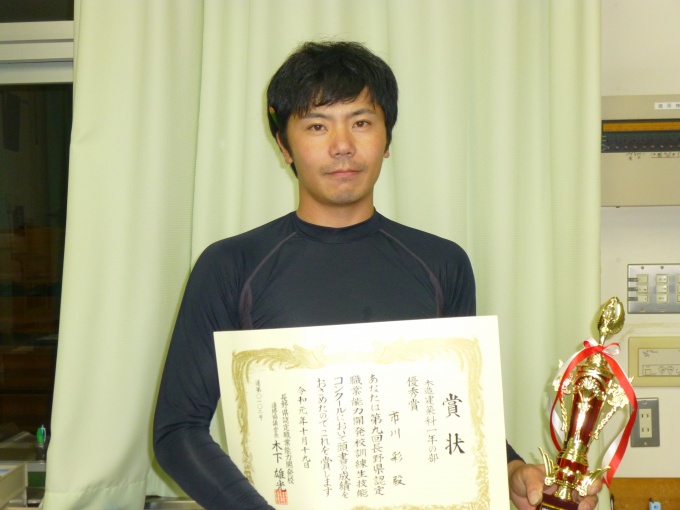 賞状
木造建築科一年の部
優秀賞
市川 彰 殿
あなたは第九回長野県認定
職業能力開発校訓練生技能
コンクールにおいて頭書の成績を
おさめたのでこれを賞します
令和元年十月十九日
長野県認定職業能力開発校
木下 雄光